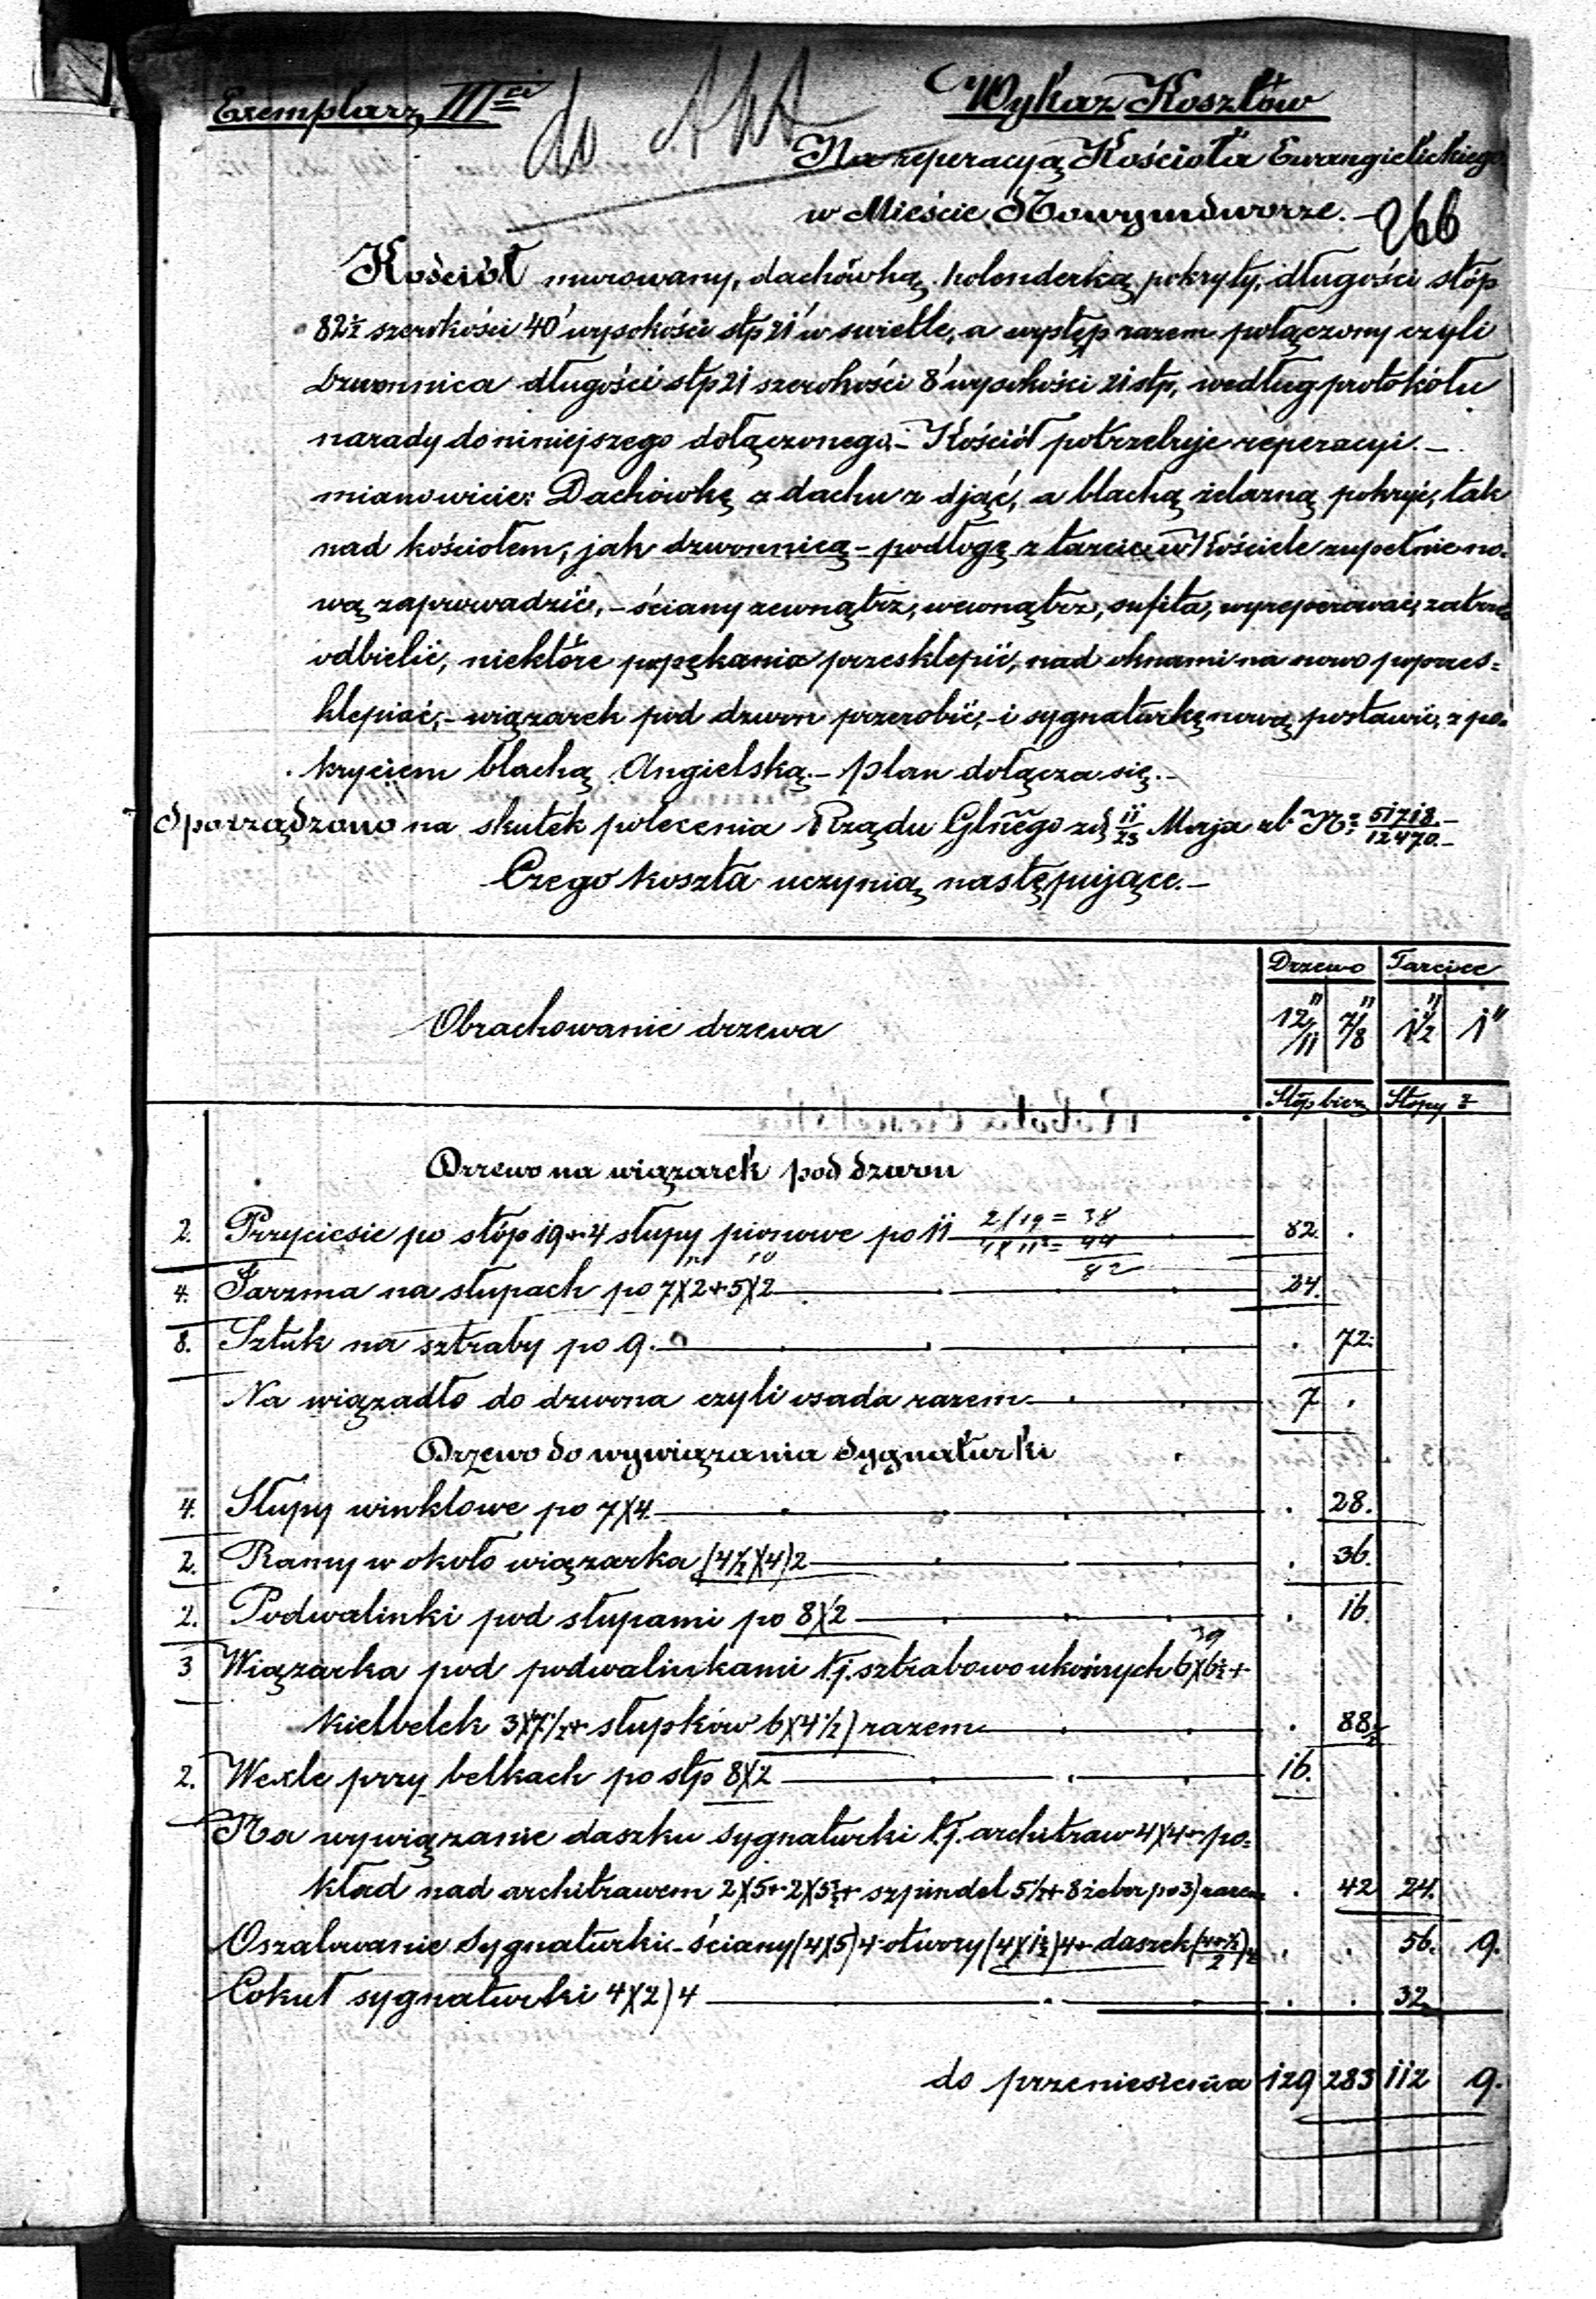 Exemplarz IIIci
do Akt
Wykaz Kosztów
Na reperacyą Kościoła Ewangielickiego
w Mieście Nowymdworze.-
266
Kościół murowany, dachówką holenderką pokryty, długości stóp
82½ szerokości 40' wysokości stp 21' w swietle, a występ razem połączony czyli
Dzwonnica długości stp 21 szerokości 8' wysokości 21 stp, według protokółu
narady do niniejszego dołączonego.- Kościół potrzebuje reperacyi.-
mianowicie: Dachówkę z dachu zdjąć, a blachą żelazną pokryć, tak
nad kościołem, jak dzwonnicą - podłogę z tarcic w Kościele zupełnie no=
wą zaprowadzić,- ściany zewnątrz, wewnątrz, sufita, wyreperować,
odbielić, niektóre popękania przesklepić, nad oknami na nowo poprzes=
klepiać,- wiązarek pod dzwon przerobić,- i sygnaturkę nową postawić, z po=
kryciem blachą Angielską.- plan dołącza się.-
Sporządzono na skutek polecenia Rządu Glnego zd 11/23 Maja rb No 51718/12470.-
Czego koszta uczynią następujące.-
Obrachowanie drzewa
Drzewo Tarcice
12/11" 7/8" 1½" 1"
Stóp bież Stopy
Drzewo na wiązarek pod dzwon
2. Przyciesie po stóp 19+4 słupy pionowe po 11 2/19 = 38 82. .
4X11 = 44
82
4. Jarzma na słupach po 7X2+5X2 24.
8. Sztuk na sztraby po 9. . 72.
Na wiązadło do dzwona czyli osada razem 7 .
Drzewo do wywiązania Sygnaturki
4. Słupy winklowe po 7X4. . 28.
2. Ramy w około wiązarka (4½X4)2 . 36.
2. Podwalinki pod słupami po 8X2 . 16.
3 Wiązarka pod podwalinkami t.j. sztrabowo ukośnych 6X6½+
39
kielbelek 3X7½+ słupków 6X4½) razem . 88½
2. Wexle przy belkach po stp 8X2 16.
Na wywiązanie daszku sygnaturki t.j. architraw 4X4+ po=
kład nad architrawem 2X5+2X5½+ szpindel 5½+ 8 żeber po 3) razem . 42 24.
Oszalowanie Sygnaturki - ściany (4X5)4 - otwory (4X1½)4+ daszek . . 56. 9.
Cokuł sygnaturki 4X2)4 . . 32
do przeniesienia 129 283 112 9.